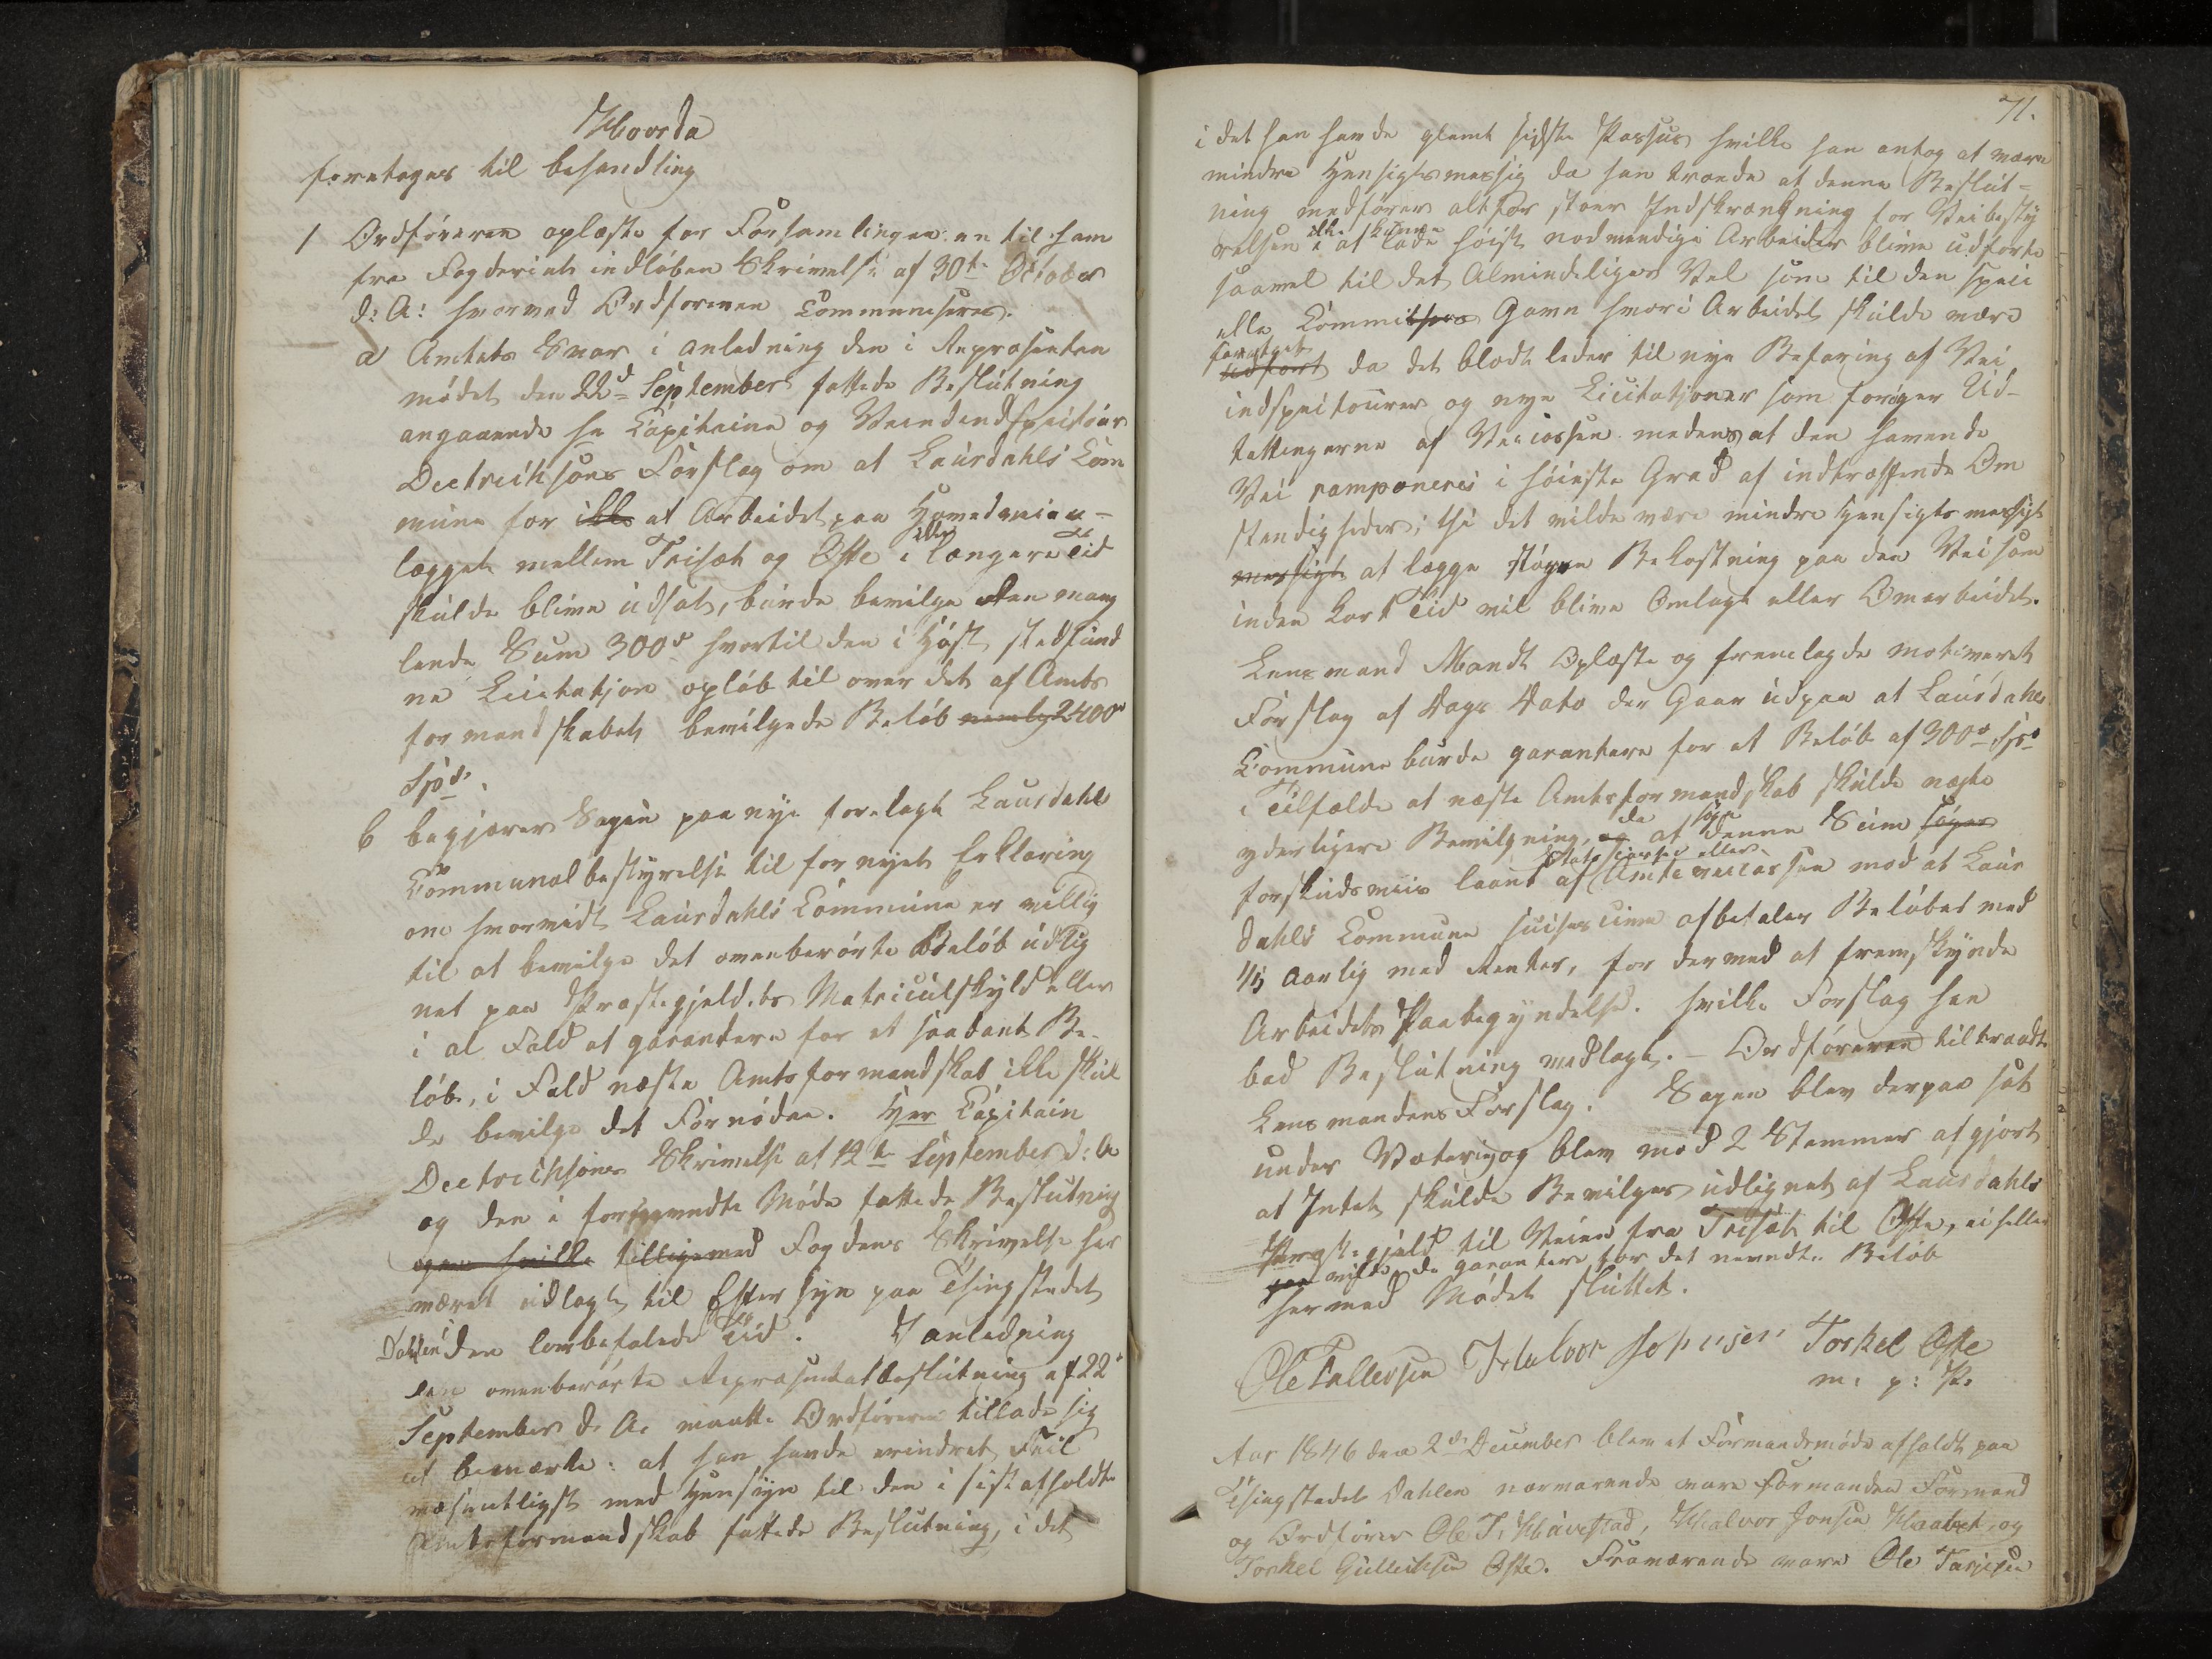 Hvorda
foretoges til behandling
1 Ordføreren oplæste for Forsamlingen en til ham
fra Fogderiet indløben Skrivelse af 30te October
d: A: hvorved Ordføreren Communiseres.
a Amtets Svar i anledning den i Repræsentan
mødet den 22d September fattede Beslutning
angaaende Hr Capitaine og Veiindspecteur
Deetrichsons Forslag om at Laurdahls Com
mune for ikke at Arbeidet paa Hovedveian-
lægget mellem Triset og Ofte i længere Tid
skulde blive udsat, burde bevilge den mang
lende Sum 300d hvortil den i Høst stedfund
ne Licitatjon opløb til over det af Amts
formandskabet bevilgede Beløb nemlig 2400d
Spd.
b begjærer Sagen paa nye forelagt Laurdahls
Communalbestyrelse til fornyet Erklæring
om hvorvidt Laurdahls Commune er villig
til at bevilge det ovenberørte Beløb udlig
net paa Præstegjeldets Matriculskyld eller
i al Fald at garantere for et saadant Be-
løb, i Fald næste Amtsformandskab ikke skul
de bevilge det Fornødne. Her Capitain
Deetrichsons Skrivelse af 12te September d: A
og den i forommeldte Møde fattede Beslutning
ogsaa hvilke tilligemed Fogdens Skrivelse har
været udlagt til Eftersyn paa Thingstedet
Dahlen i den lovbefalede Tid. I anledning
den ovenberørte Repræsentatbeslutning af 22d
September d. A. maatte Ordføreren tillade sig
at bemærke: at han havde erindret Feil
væsentligst med Hensyn til den i sist afholdte
Amtsformandskab fattede Beslutning, i det
71.
i det han havde glemt sidste Passus hvilke han antog at være
mindre Hensigtsmessig da han troede at denne Beslut=
ning medfører altfor stoer Indskrænkning for Veibesty
relsen i ikke at kunne lade høist nødvendige Arbeider blive udførte
saavel til det Almindeliges Vel som til den speci
elle Commities Gavn hvori Arbeidet skulde være
foretaget
udført da det blodt leder til nye Befaring af Vei
indspecteurer og nye Licitatjoner som forøger Ud-
tellingerne af Veicassen medens at den havende
Vei ramponeres i høieste Grad af indtræffende Om
stændigheder; thi det vilde være mindre Hensigtsmessigt
messigt at lægge større Bekostning paa den Vei som
inden kort Tid vil blive Omlagt eller Omarbeidet.
Lensmand Mandt Oplæste og fremlagde motiveret
Forslag af Dags Dato der Gaar udpaa at Laurdahls
Commune burde garantere for et Beløb af 300d Spd
i Tilfælde at næste Amtsformandskab skulde negte
yderligere Bevilgning, og da at søge denne Sum søges
forskudsviis laant af Statscassen eller Amtsveicassen mod at Laur
dahls Commune successive afbetaler Beløbet med
1/5 aarlig med Renter, for dermed at fremskynde
Arbeidets Paabegyndelse. hvilke Forslag han
bad Beslutning vedlagt. – Ordføreren tiltraadte
Lensmandens Forslag. Sagen blev derpaa sat
under Votering og blev mod 2 Stemmer afgjort
at Intet skulde Bevilges udlignet af Laurdahls
Præstegjeld til Veien fra Triset til Ofte, ei heller
paa vilde de garantere for det nevndte Beløb
hermed Mødet sluttet.
Ole Tallevsen Halvor Johnsen Torkel Ofte
m: p: P.
Aar 1846 den 2d December blev et Formandsmøde afholdt paa
Thingstedet Dahlen nærværende vare Formanden Formand
og Ordfører Ole T. Håvestad, Halvor Jonsen Haatvet, og
Torkel Gulleichsen Ofte. Fraværende vare Ole Tarjeisen